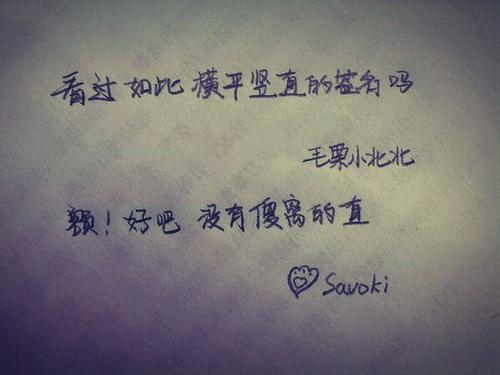 看过如此横平竖直的签名吗
毛栗小北北
额！好吧 没有傻离的直
Savoki